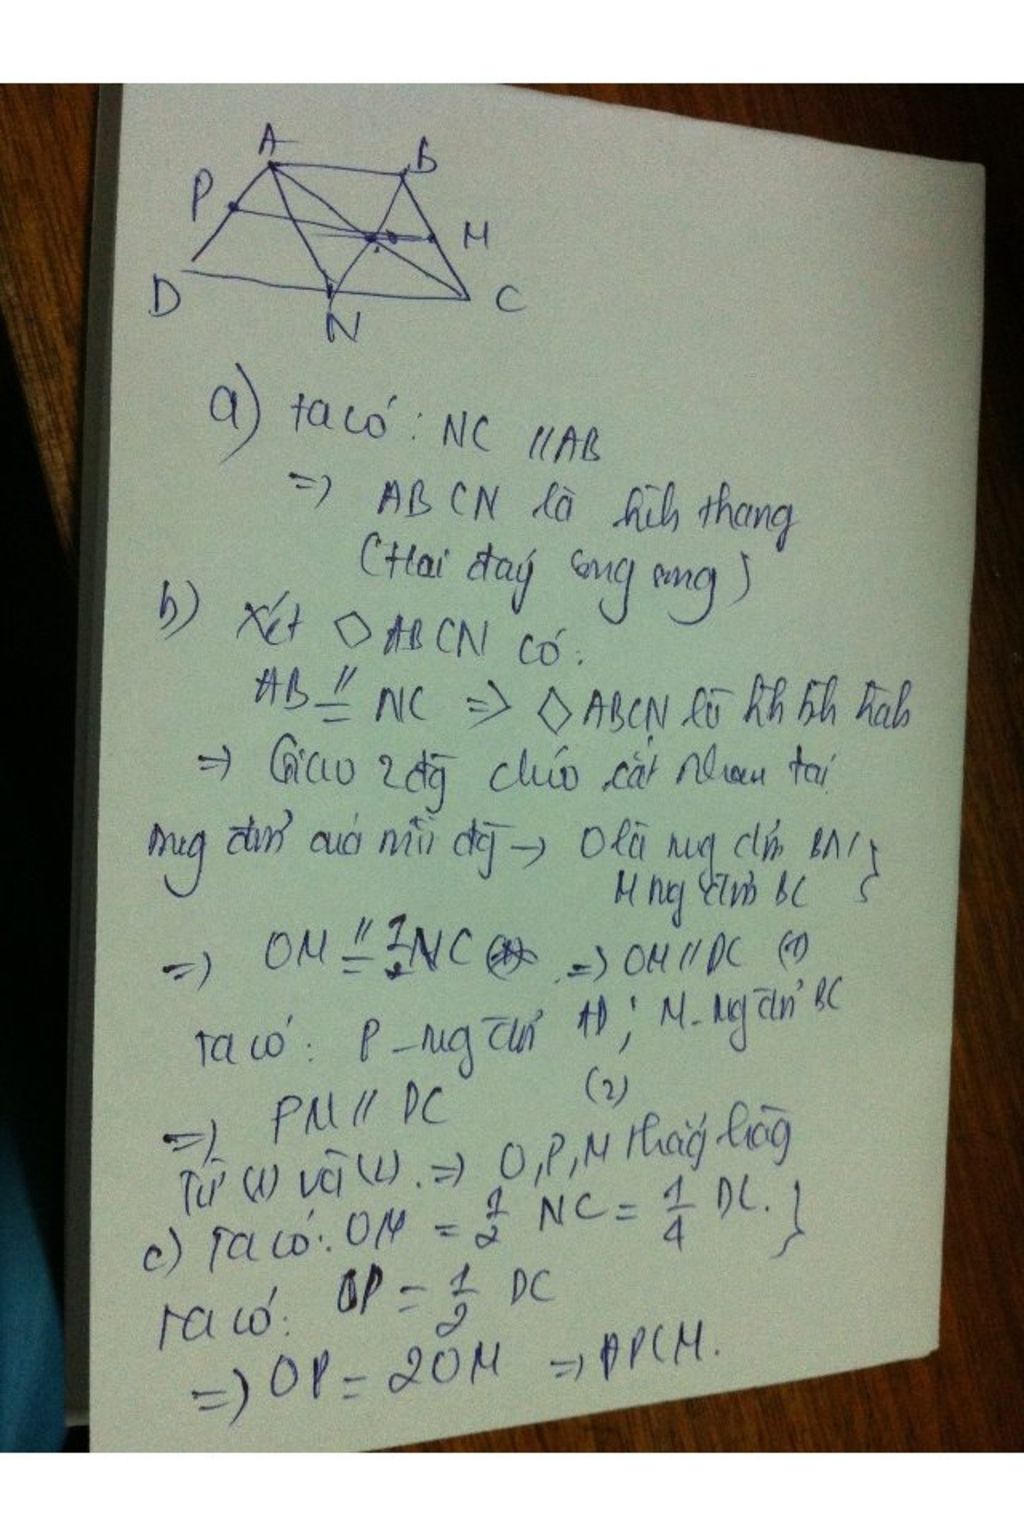 A
B
P
M
D
N
C
a) ta có: NC // AB
=> ABCN là hình thang
(Hai đáy song song)
b) Xét ◇ ABCN có:
AB // = NC => ◇ ABCN là hh bh hàh
=> Giao 2 đg chéo cắt nhau tại
mỗi đg → O là BN }
M BC
=> OM // = 1/2 NC => OM // DC (1)
Ta có: P AD; M BC
=> PM // DC (2)
Từ (1) và (2) => O, P, M thẳg hàg
c) Ta có: OM = 1/2 NC = 1/4 DC. }
Ta có: OP = 1/2 DC
=> OP = 2OM => ĐPCM.